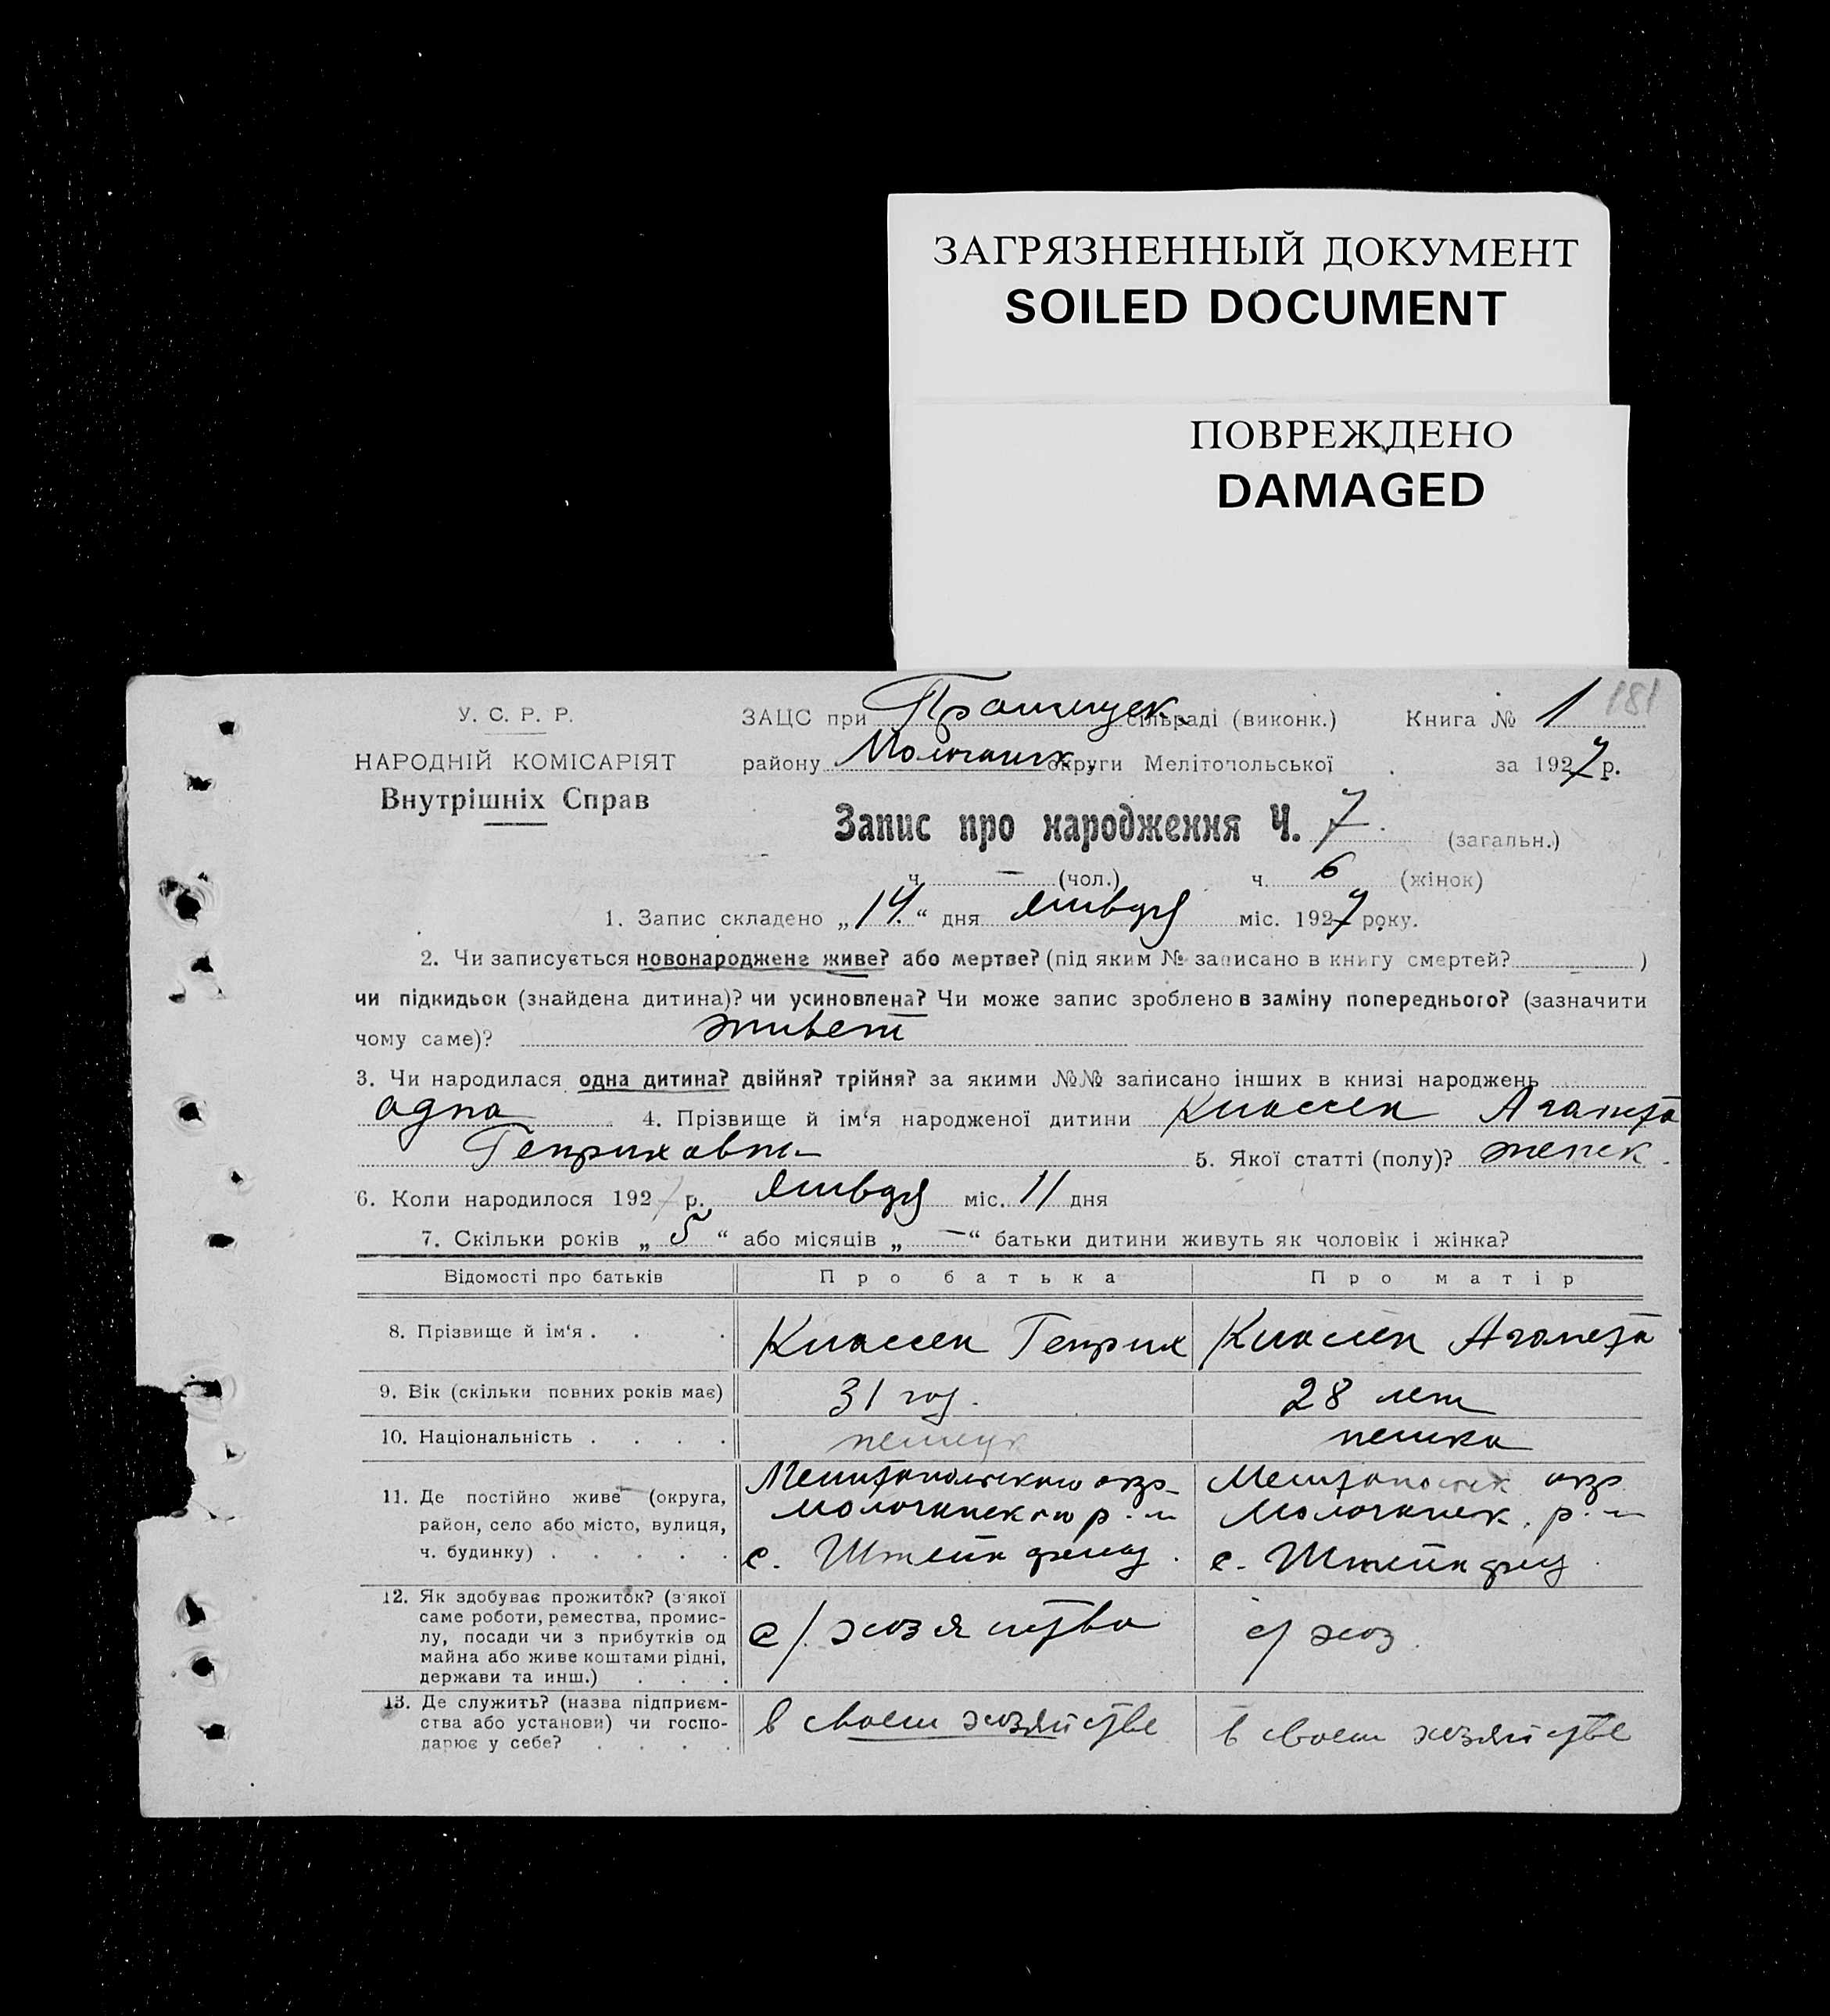 ЗАГРЯЗНЕННЫЙ ДОКУМЕНТ
SOILED DOCUMENT
ПОВРЕЖДЕНО
DAMAGED
181
У. С. Р. Р.
НАРОДНІЙ КОМІСАРІЯТ
Внутрішніх Справ
ЗАЦС при сільраді (виконк.) Книга № 1
району Молочанск. округи Мелітопольської за 1927 р.
Запис про народження Ч. 7. (загальн.)
ч. — (чол.) ч. 6 (жінок)
1. Запис складено „14.“ дня января міс. 1927 року.
2. Чи записується новонароджене живе? або мертве? (під яким № записано в книгу смертей? — )
чи підкидьок (знайдена дитина)? чи усиновлена? Чи може запис зроблено в заміну попереднього? (зазначити
чому саме)? живет
3. Чи народилася одна дитина? двійня? трійня? за якими №№ записано інших в книзі народжень
одна 4. Прізвище й ім‘я народженої дитини Классен Аганета
Генриховна 5. Якої статті (полу)? женск.
6. Коли народилося 1927 р. января міс. 11 дня
7. Скільки років „ 5 “ або місяців „ — “ батьки дитини живуть як чоловік і жінка?
Відомості про батьків Про батька Про матір
8. Прізвище й ім‘я . . . Классен Генрих Классен Аганета
9. Вік (скільки повних років має) 31 год. 28 лет
10. Національність . . . . немец немка
11. Де постійно живе (округа,
район, село або місто, вулиця,
ч. будинку) . . . . .
Мелитопольского окр.
Молочанского р-н
с. Штейнфельд.
Мелитопольск окр.
Молочанск. р-н
с. Штейнфелд.
12. Як здобуває прожиток? (з якої
саме роботи, ремества, промис-
лу, посади чи з прибутків од
майна або живе коштами рідні,
держави та инш.) . . .
с/. хозяйство
с/ хоз.
13. Де служить? (назва підприєм-
ства або установи) чи госпо-
дарює у себе? . . . .
в своем хозяйстве
в своем хозяйстве